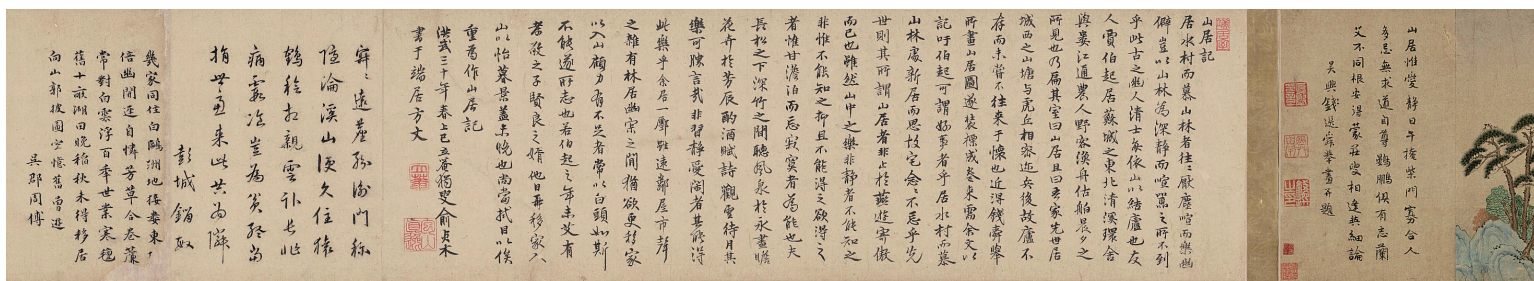 山居惟愛靜日午掩柴門寡合人
多忌無求道自尊鷃鵬俱有志蘭
艾不同根安得蒙莊叟相逢與細論
吳興錢選舜舉畫并題
山居記
居水村而慕山林者往〻厭塵喧而樂幽
僻豈以山林為深靜而喧囂之所不到
乎此古之幽人清士多依山以結廬也友
人賈伯起居蘇城之東北清溪環舍
與婁江通農人野客漁舟估舶晨夕之
所見也乃扁其室曰山居且曰吾家先世居
城西之山塘与虎丘相密迩兵後故廬不
存而未嘗不往來于懷也近得錢舜舉
所畫山居圖遂裝褾成卷來需余文以
記吁伯起可謂好事者乎居水村而慕
山林處新居而思故宅念〻不忘乎先
世則其所謂山居者非止於燕遊寄傲
而已也雖然山中之樂非靜者不能知之
非惟不能知之抑且不能得之欲得之
者惟甘澹泊而忘寂寞者為能也夫
長松之下深竹之間聽風泉於永晝瞻
花卉於芳辰酌酒賦詩觀雲待月其
樂可勝言哉非習靜者其能得
此樂乎余居一廛雖遠鄽居市聲
之雜有林居幽寂之間猶欲更移家
以入山顧力有不足者常以白頭如斯
不能遂所志也若伯起之年未艾有
孝敬之子賢良之婿他日再移家入
山以怡暮景蓋未晚也尚當拭目以俟
重為作山居記
洪武三十年春上巳立菴獨叟俞貞木
書于端居方丈
寂〻遠塵衡門稱
隱淪溪山便久住猿
鶴稔相親雲卧長非
病霞飡豈為貧終當
捐世慮来此共為隣
彭城鎦敏
幾家同住白鷗洲地接婁東〻
倍幽閒迳自憐芳草合卷簾
常對白雲浮百年世業寒氊
舊十亩湖田晚稻秋未得移居
向山郭披圖空憶舊曾遊
吳郡周傅